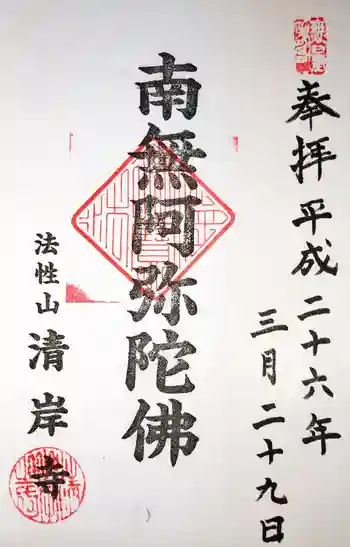 奉拝 平成二十六年
三月二十九日
南無阿弥陀佛
法性山 清岸寺